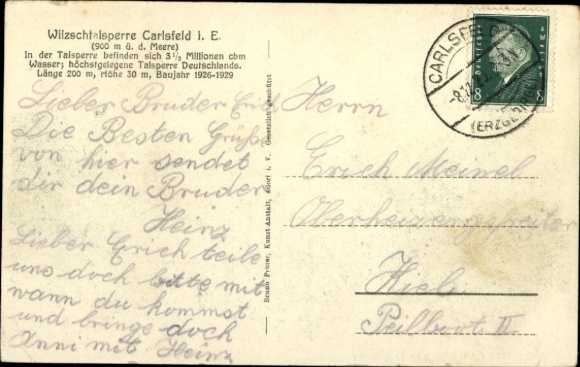 Wilzschtalsperre Carlsfeld i. E.
(900 m ü. d. Meere)
In der Talsperre befinden sich 3 1/3 Millionen cbm
Wasser; höchstgelegene Talsperre Deutschlands.
Länge 200 m, Höhe 30 m, Baujahr 1926-1929
Lieber Bruder Erich
Die Besten Grüße
von hier sendet
dir dein Bruder
Heinz
Lieber Erich teile
uns doch bitte mit
wann du kommst
und bringe doch
Anni mit Heinz
Bruno Prüser, Kunst-Anstalt, Adorf i. V. Gesetzlich geschützt
CARLSFELD
(ERZGEB)
8 8
Herrn
Erich Meinel
Oberheizengefreiter
Kiel
Peilboot II